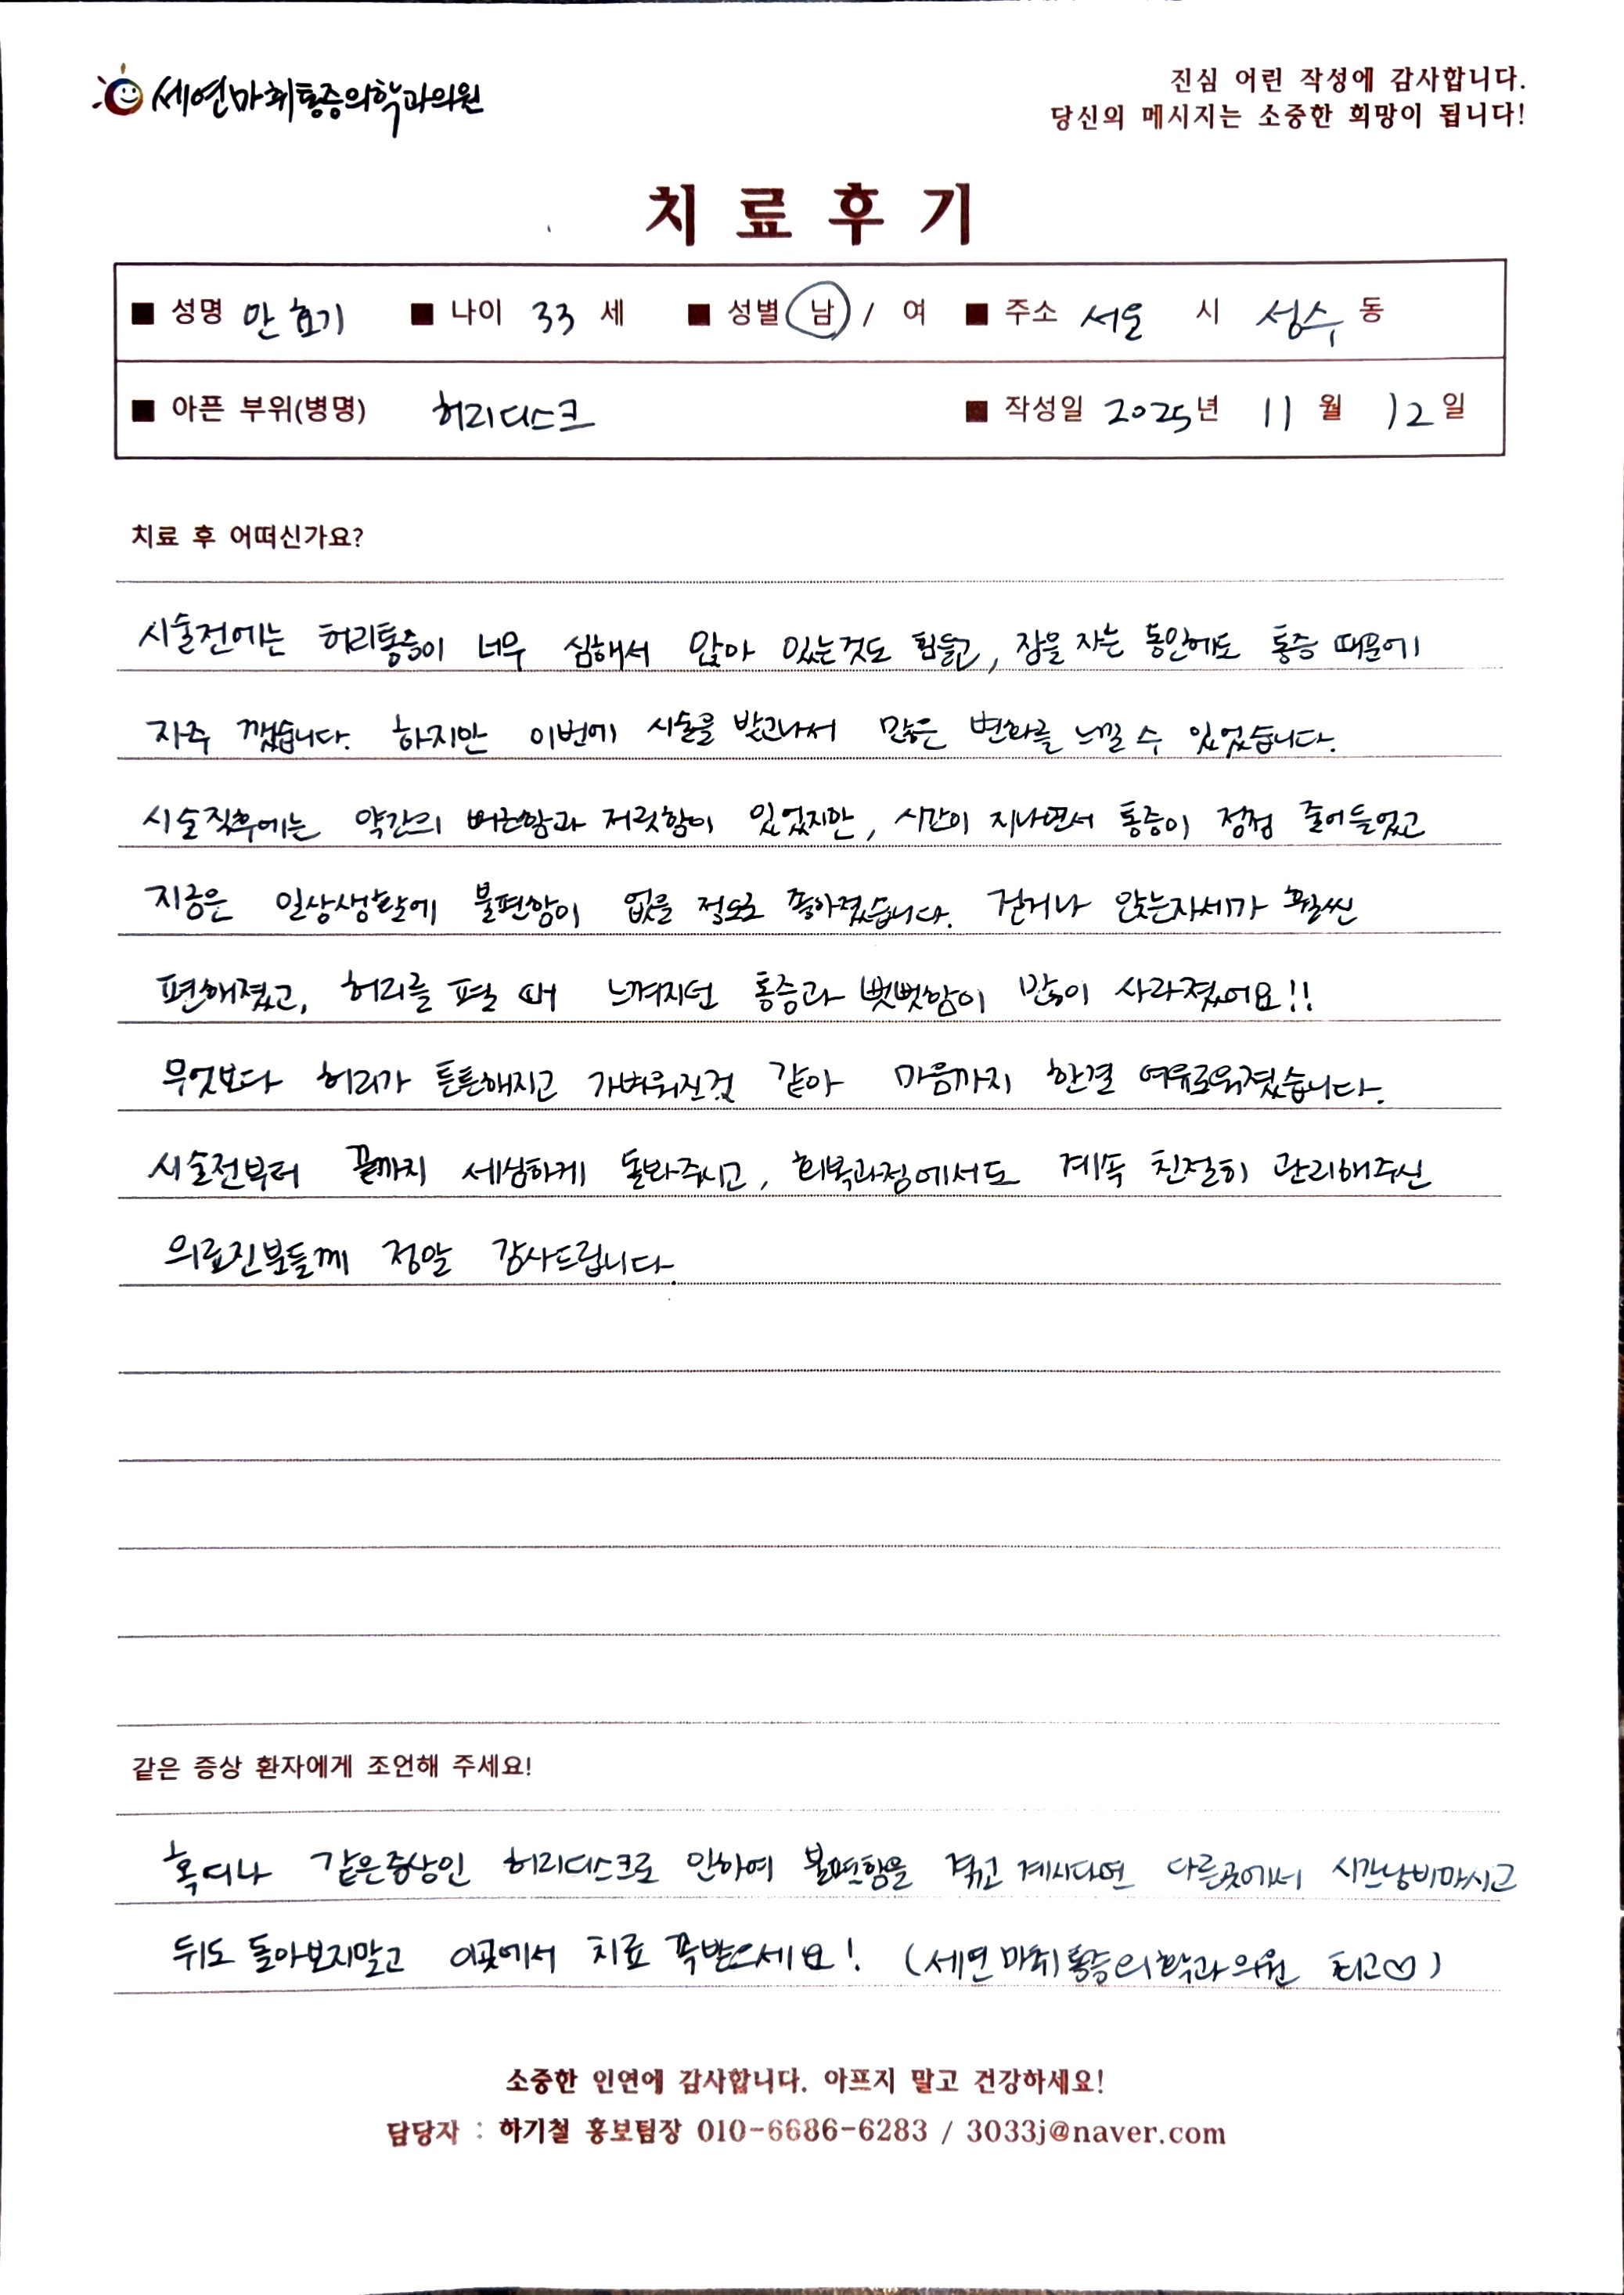 세연마취통증의학과의원
진심 어린 작성에 감사합니다.
당신의 메시지는 소중한 희망이 됩니다!
치료후기
■ 성명 안효기 ■ 나이 33 세 ■ 성별 남 / 여 ■ 주소 서울 시 성수 동
■ 아픈 부위(병명) 허리디스크 ■ 작성일 2025년 11 월 12 일
치료 후 어떠신가요?
시술전에는 허리통증이 너무 심해서 앉아 있는것도 힘들고, 잠을 자는 동안에도 통증 때문에
자주 깼습니다. 하지만 이번에 시술을 받고나서 많은 변화를 느낄 수 있었습니다.
시술직후에는 약간의 뻐근함과 저릿함이 있었지만, 시간이 지나면서 통증이 점점 줄어들었고
지금은 일상생활에 불편함이 없을 정도로 좋아졌습니다. 걷거나 앉는자세가 훨씬
편해졌고, 허리를 펼 때 느껴지던 통증과 뻣뻣함이 많이 사라졌어요!!
무엇보다 허리가 튼튼해지고 가벼워진것 같아 마음까지 한결 여유로워졌습니다.
시술전부터 끝까지 세심하게 돌봐주시고, 회복과정에서도 계속 친절히 관리해주신
의료진분들께 정말 감사드립니다.
같은 증상 환자에게 조언해 주세요!
혹여나 같은증상인 허리디스크로 인하여 불편함을 겪고 계시다면 다른곳에서 시간낭비마시고
뒤도 돌아보지말고 이곳에서 치료 꼭받으세요! (세연마취통증의학과의원 최고♡)
소중한 인연에 감사합니다. 아프지 말고 건강하세요!
담당자 : 하기철 홍보팀장 010-6686-6283 / 3033j@naver.com